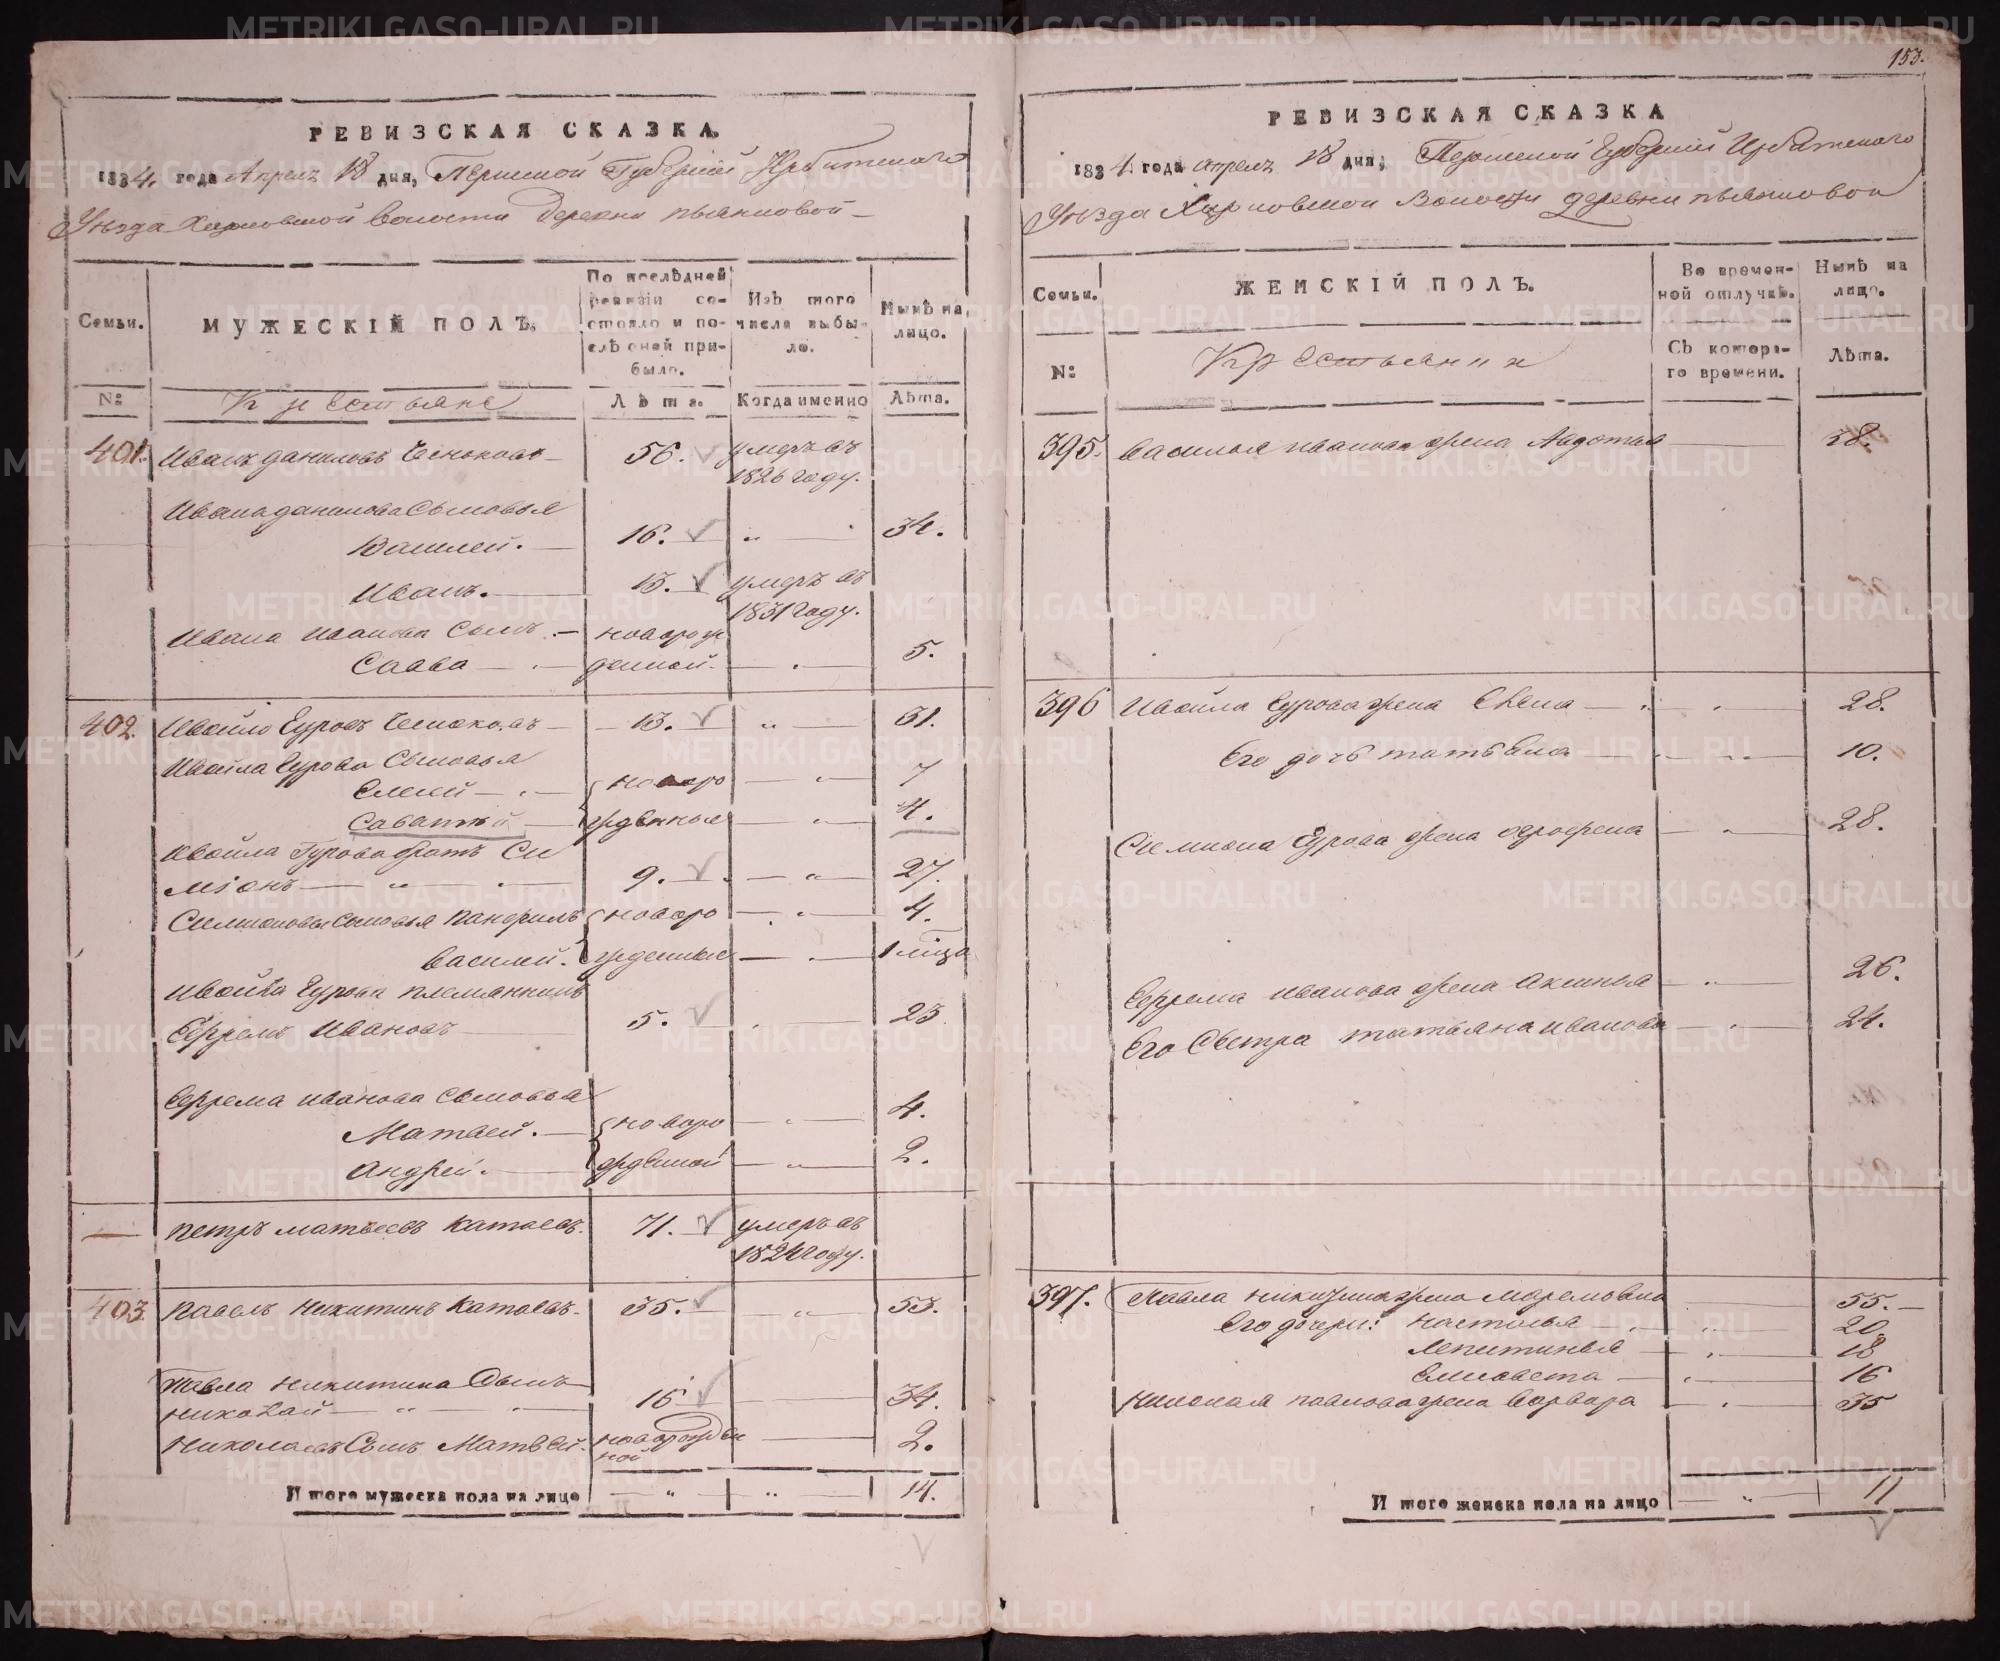 153.
РЕВИЗСКАЯ СКАЗКА.
1834. года Апреля 18 дня, Пермской Губерніи Ирбитского
Уезда Харловской волости Деревни пьянковой
Семьи.
МУЖЕСКІЙ ПОЛЪ.
По послѣдней ревизіи состояло и послѣ оной прибыло.
Изъ того числа выбыло.
Нынѣ на лицо.
№:
Крестьяне
Лѣта.
Когда именно
Лѣта.
401. Иванъ даниловъ Чесноковъ 56. умеръ въ
1826 году.
Ивана данилова Сыновья
Василей. 16. „ 34.
Иванъ. 13. умеръ въ
1831 году.
Ивана Иванова Сынъ новорож
Савва денной. 5.
402. Ивойло Гуровъ Чесноковъ 13. „ 31.
Ивойла Гурова Сыновья
Елисей новоро „ 7
Саватѣй жденные „ 4.
Ивойла Гурова братъ Си
мионъ 9. „ 27.
Симионовы Сыновья Панфилъ новоро „ 4.
Василей. жденные „
Ивойла Гурова племянникъ
Ефремъ Ивановъ 5. 23
Ефрема иванова Сыновья
Матвей. новоро 4.
Андрей. жденной „ 2.
петръ матвеевъ Катаевъ. 71. умеръ въ
1824 году.
403 павелъ никитинъ Катаевъ. 35. „ 53.
Павла никитина Сынъ
николай 16 34.
николаевъ Сынъ Матвей. новорожден
ной 2.
И того мужеска пола на лицо „ „ 14.
РЕВИЗСКАЯ СКАЗКА
1834. года апреля 18 дня, Пермской Губерніи Ирбитского
Уезда Харловской Волости деревни пьянковой
Семьи.
ЖЕНСКІЙ ПОЛЪ.
Во временной отлучкѣ.
Нынѣ на лицо.
№:
Крестьянки
Съ котораго времени.
Лѣта.
395. Василья иванова жена Авдотья 38.
396 Ивойла Гурова жена Елена „ 28.
Его дочь татьяна 10.
Симиона Гурова жена „ 28.
Ефрема иванова жена Аксинья „ 26.
Его Сестра татьяна иванова „ 24.
397. Павла никитина жена 55.
Его дочери: настасья „ 20.
18
Елисавета „ 16
николая павлова жена варвара 35
И того женска пола на лицо „ 11
METRIKI.GASO-URAL.RU